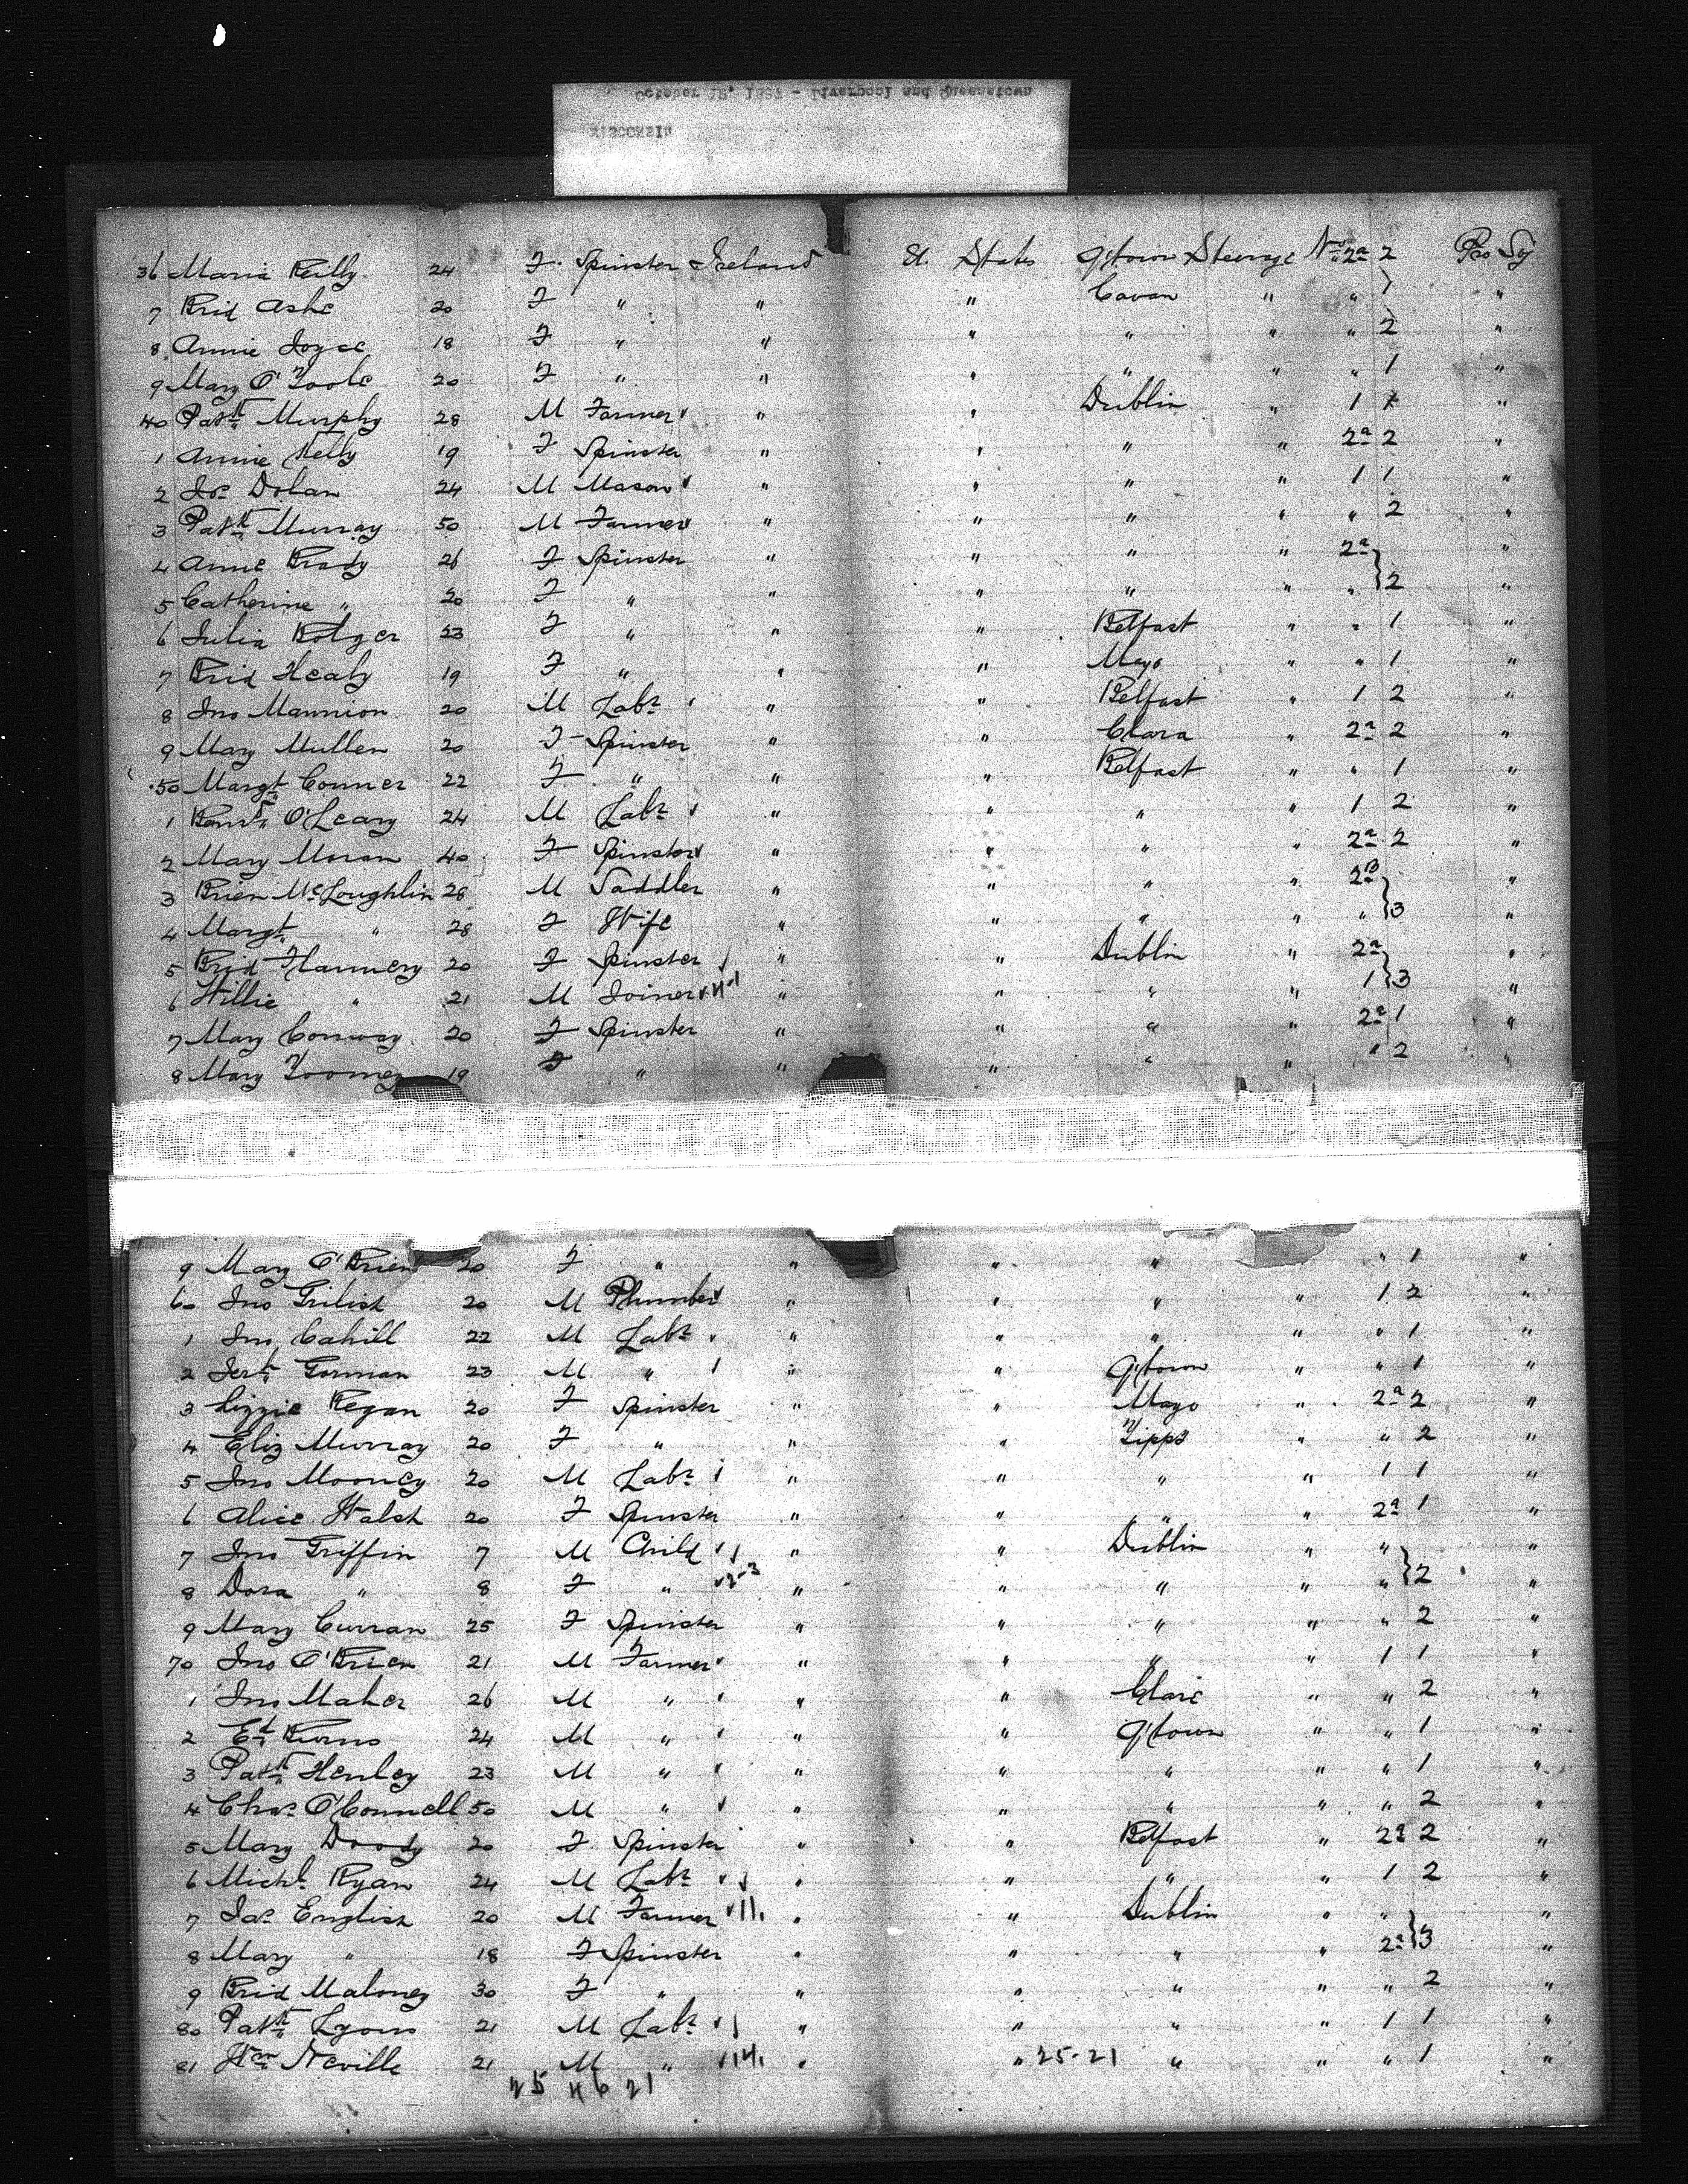 October 18, 1887 - Liverpool and Queenstown
WISCONSIN
36 Maria Reilly 24 F. Spinster Ireland U. States Q'town Steerage No 2a 2 Pro Sg
7 Brid Ashe 20 F " " " Cavan " " 1 "
8 Annie Joyce 18 F " " " " " " 2 "
9 Mary O'Toole 20 F " " " " " " 1 "
40 Patk Murphy 28 M Farmer " " Dublin " 1 1 "
1 Annie Kelly 19 F Spinster " " " " 2a 2 "
2 Jos Dolan 24 M Mason " " " " 1 1 "
3 Patk Murray 50 M Farmer " " " " " 2 "
4 Anne Brady 26 F Spinster " " " " 2a "
5 Catherine " 20 F " " " " " " } 2 "
6 Julia Bolger 23 F " " " Belfast " " 1 "
7 Brid Healy 19 F " " " Mayo " " 1 "
8 Jno Mannion 20 M Labr " " Belfast " 1 2 "
9 Mary Mullen 20 F Spinster " " Clara " 2a 2 "
50 Margt Conner 22 F " " " Belfast " " 1 "
1 O'Leary 24 M Labr " " " " 1 2 "
2 Mary Moran 40 F Spinster " " " " 2a 2 "
3 Brien McLoughlin 28 M Saddler " " " " 2B "
4 Margt " 28 F Wife " " " " " } 3 "
5 Brid Flannery 20 F Spinster " " Dublin " 2a "
6 Willie " 21 M Joiner " " " " 1 } 3 "
7 Mary Conway 20 F Spinster " " " " 2a 1 "
8 Mary Toomey 19 F " " " " " " 2 "
9 Mary O'Brien 20 F " " " " " 1 "
60 Jno Grilish 20 M Plumber " " " " 1 2 "
1 Jno Cahill 22 M Labr " " " " " 1 "
2 Jerh Gorman 23 M " " " Q'town " " 1 "
3 Lizzie Regan 20 F Spinster " " Mayo " 2a 2 "
4 Eliz Murray 20 F " " " Tippo " " 2 "
5 Jno Mooney 20 M Labr " " " " 1 1 "
6 Alice Walsh 20 F Spinster " " " " 2a 1 "
7 Jno Griffin 7 M Child " " Dublin " " "
8 Dora " 8 F " 2-3 " " " " " } 2 "
9 Mary Curran 25 F Spinster " " " " " 2 "
70 Jno O'Brien 21 M Farmer " " " " 1 1 "
1 Jno Maher 26 M " " " Clare " " 2 "
2 Ed Burns 24 M " " " Q'town " " 1 "
3 Patk Henley 23 M " " " " " " 1 "
4 Chas O'Connell 50 M " " " " " " 2 "
5 Mary Doody 20 F Spinster " " Belfast " 2a 2 "
6 Michl Ryan 24 M Labr " " " " 1 2 "
7 Jas English 20 M Farmer 11 " " Dublin " " "
8 Mary " 18 F Spinster " " " " 2a } 3 "
9 Brid Maloney 30 F " " " " " " 2 "
80 Patk Lyons 21 M Labr " " " " 1 1 "
81 Wm Neville 21 M " 14 " " 25-21 " " " 1 "
25 46 21